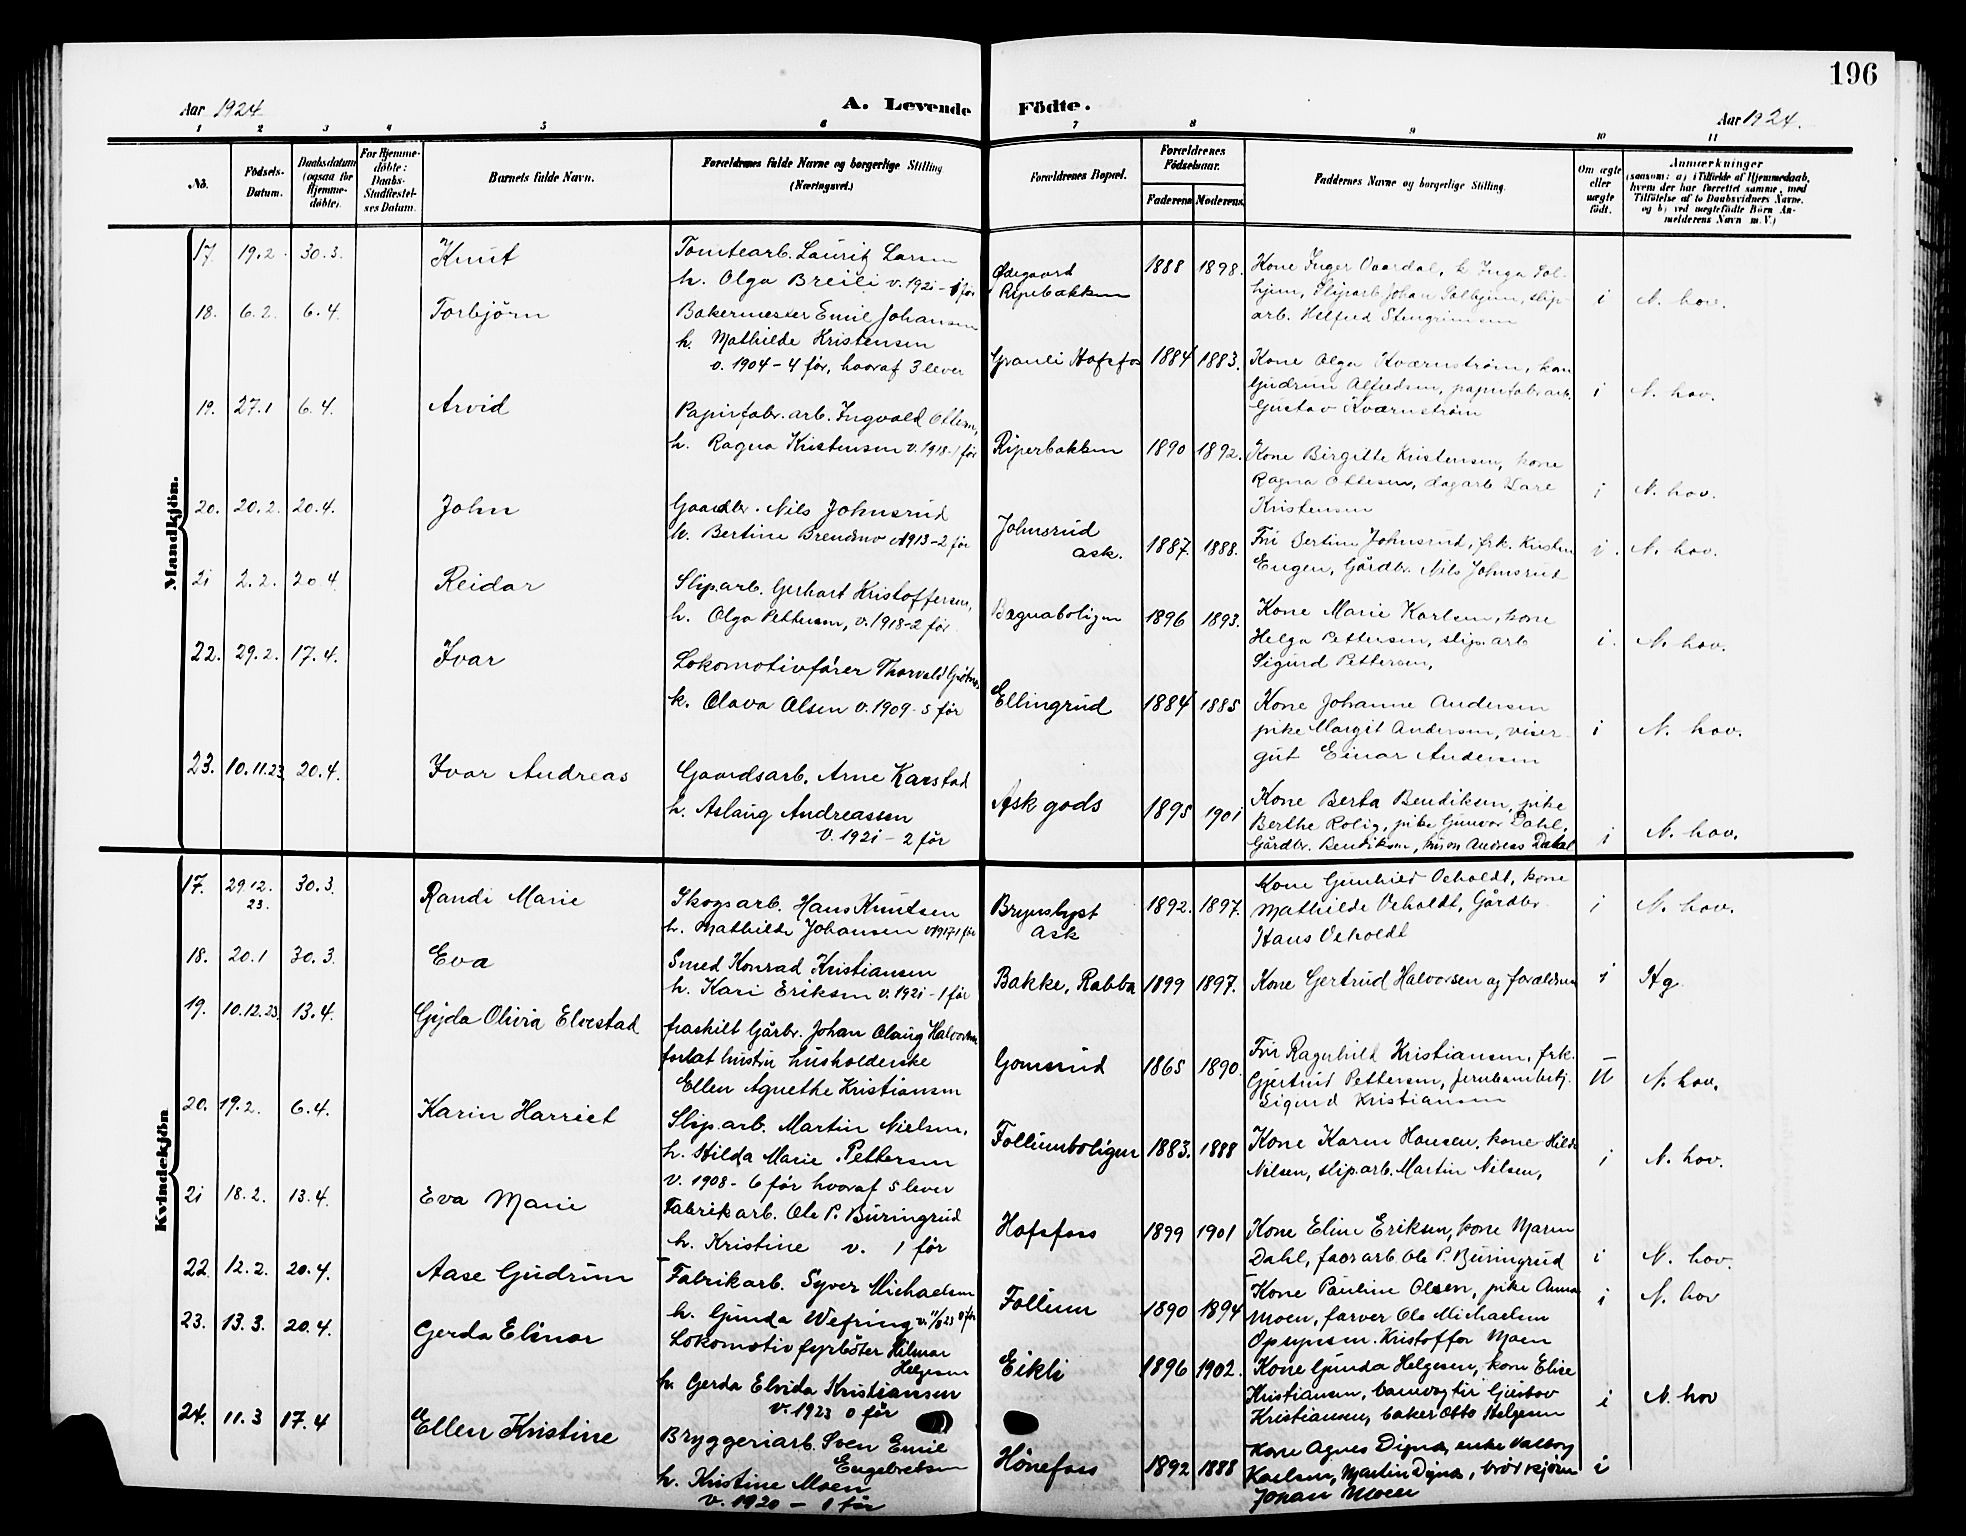 196
Aar 1924
A. Levende Födte.
Aar 1924.
1 2 3 4 5 6 7 8 9 10 11
No.
Födsels-Datum.
Daabsdatum (ogsaa for Hjemme-döbte).
For Hjemme-döbte: Daabs-Stadfæstel-ses Datum.
Barnets fulde Navn.
Forældrenes fulde Navne og borgerlige Stilling
(Næringsvei.)
Forældrenes Bopæl.
Forældrenes Födselsaar.
Faderens Moderens
Faddernes Navne og borgerlige Stilling.
Om ægte eller uægte födt.
Anmærkninger
(saasom: a) i Tilfælde af Hjemmedaab,
hvem der har forrettet samme, med
Tilföielse af to Daabsvidners Navne.
og b) ved uægtefödte Börn An-
melderens Navn m. V.)
Mandkjön.
17. 19.2. 30.3. Knut
Tomtearb. Lauritz Larsen
h. Olga Breili v. 1921 - 1 før
Ødegaard
Ripebakken
1888 1898.
Kone Inger Vaardal, k Inga Sol-
hjem, Sliparb Johan Solhjem, slip-
arb. Helfred Stengrimsen
i N. hov.
18. 6.2. 6.4. Torbjörn
Bakermester Emil Johansen
h. Mathilde Kristensen
v. 1904 - 4 før, hvoraf 3 lever
Granli Hofsfos 1884 1883.
Kone Olga Kværnstrøm, kon
Gudrun Alfredsen, papirfabr. arb.
Gustav Kværnstrøm
i N. hov.
19. 27.1 6.4. Arvid
Papirfabr. arb. Ingvald Ottesen,
h. Ragna Kristensen v. 1918 - 1 før
Riperbakken 1890 1892.
Kone Birgitte Kristensen, kone
Ragna Ottesen, dagarb Kare
Kristensen
i N. hov.
20. 20.2. 20.4. John
Gaardbr. Nils Johnsrud
h. Bertine Brendmo v. 1913 - 2 før
Johnsrud
Ask.
1887. 1888.
Fru Bertine Johnsrud, frk. Kirsten
Engen, Gårdbr. Nils Johnsrud
i. N. hov.
21 2.2. 20.4 Reidar
Slip.arb. Gerhart Kristoffersen,
h. Olga Pettersen, v. 1918 - 2 før
Bægnaboligen 1896 1893.
Kone Marie Karlsen, kone
Helga Pettersen, slip. arb
Sigurd Pettersen,
i. N. hov.
22. 29.2. 17.4. Ivar
Lokomotivfører Thorvald
k. Olava Olsen v. 1909 - 5 før
Ellingrud 1884 1885
Kone Johanne Andersen
pike Margit Andersen, viser-
gut Einar Andersen
i N. hov.
23. 10.11.23. 20.4. Ivar Andreas
Gaardsarb. Arne Karstad
h. Aslaug Andreassen
v. 1921 - 2 før
Ask gods 1895 1901
Kone Berta Bendiksen, pike
Berthe Rolig, pike Gunvor Dahl,
Gårdbr. Bendiksen, Andreas Dahl
i N. hov.
Kvindekjön
17. 29.12. 23. 30.3. Randi Marie
Skogsarb. Hans Knutsen
h. Mathilde Johansen v. 1917 1 før
Brynshyst
Ask
1892. 1897.
Kone Gunhild Veholdt, kone
Mathilde Veholdt, Gårdbr.
Hans Veholdt
i N. hov.
18. 20.1 30.3. Eva
Smed Konrad Kristiansen
h. Kari Eriksen v. 1921 - 1 før
Bakke, Rabba 1899 1897.
Kone Gertrud Halvorsen og forældrene
i Hg.
19. 10.12.23. 13.4. Gyda Olivia Elvestad
fraskilt Gårbr. Johan Olaug Halvorsen
forlat hustru husholderske
Ellen Agnethe Kristiansen
Gomsrud 1865 1890.
Fru Ragnhild Kristiansen, frk.
Gjertrud Pettersen, Jernbanebetj.
Sigurd Kristiansen
U N. hov.
20. 19.2. 6.4. Karin Harriet
Slip.arb. Martin Nielsen,
h. Hilda Marie Pettersen
v. 1908 - 6 før hvoraf 5 lever
Folliumboligen 1883. 1888
Kone Karen Hansen, kone Hilda
Nilsen, slip.arb. Martin Nilsen,
i N. hov.
21 18.2. 13.4. Eva Marie
Fabrikarb. Ole P. Buringrud
h. Kristine v. 1 før
Hofsfoss 1899 1901
Kone Eline Eriksen, kone Maren
Dahl, faorarb. Ole P. Buringrud
i N. hov.
22. 12.2. 20.4. Aase Gudrun
Fabrikarb. Syver Michaelsen
h. Gunda Wefring v. 11/8 23 0 før
Follum 1890 1894
Kone Pauline Olsen, pike Anna
Moen, farver Ole Michaelsen
Opsynsm. Kristoffer Moen
i N. hov
23. 13.3. 20.4. Gerda Elinor
Lokomotivfyrbøter Hilmar
Helgesen
h. Gerda Elvida Kristiansen
v. 1923 0 før
Eikli 1896 1902.
Kone Gunda Helgesen, kone Elise
Kristiansen, banevogter Gustav
Kristiansen, baker Otto Helgesen
i N. hov
24. 11.3 17.4 Ellen Kristine
Bryggeriarb. Sven Emil
Engebretsen
h. Kristine Moen
v. 1920 - 1 før
Hönefoss 1892 1888
Kone Agnes Digna, enke Valborg
Karlsen, Martin Digna,
Johan Moen
i